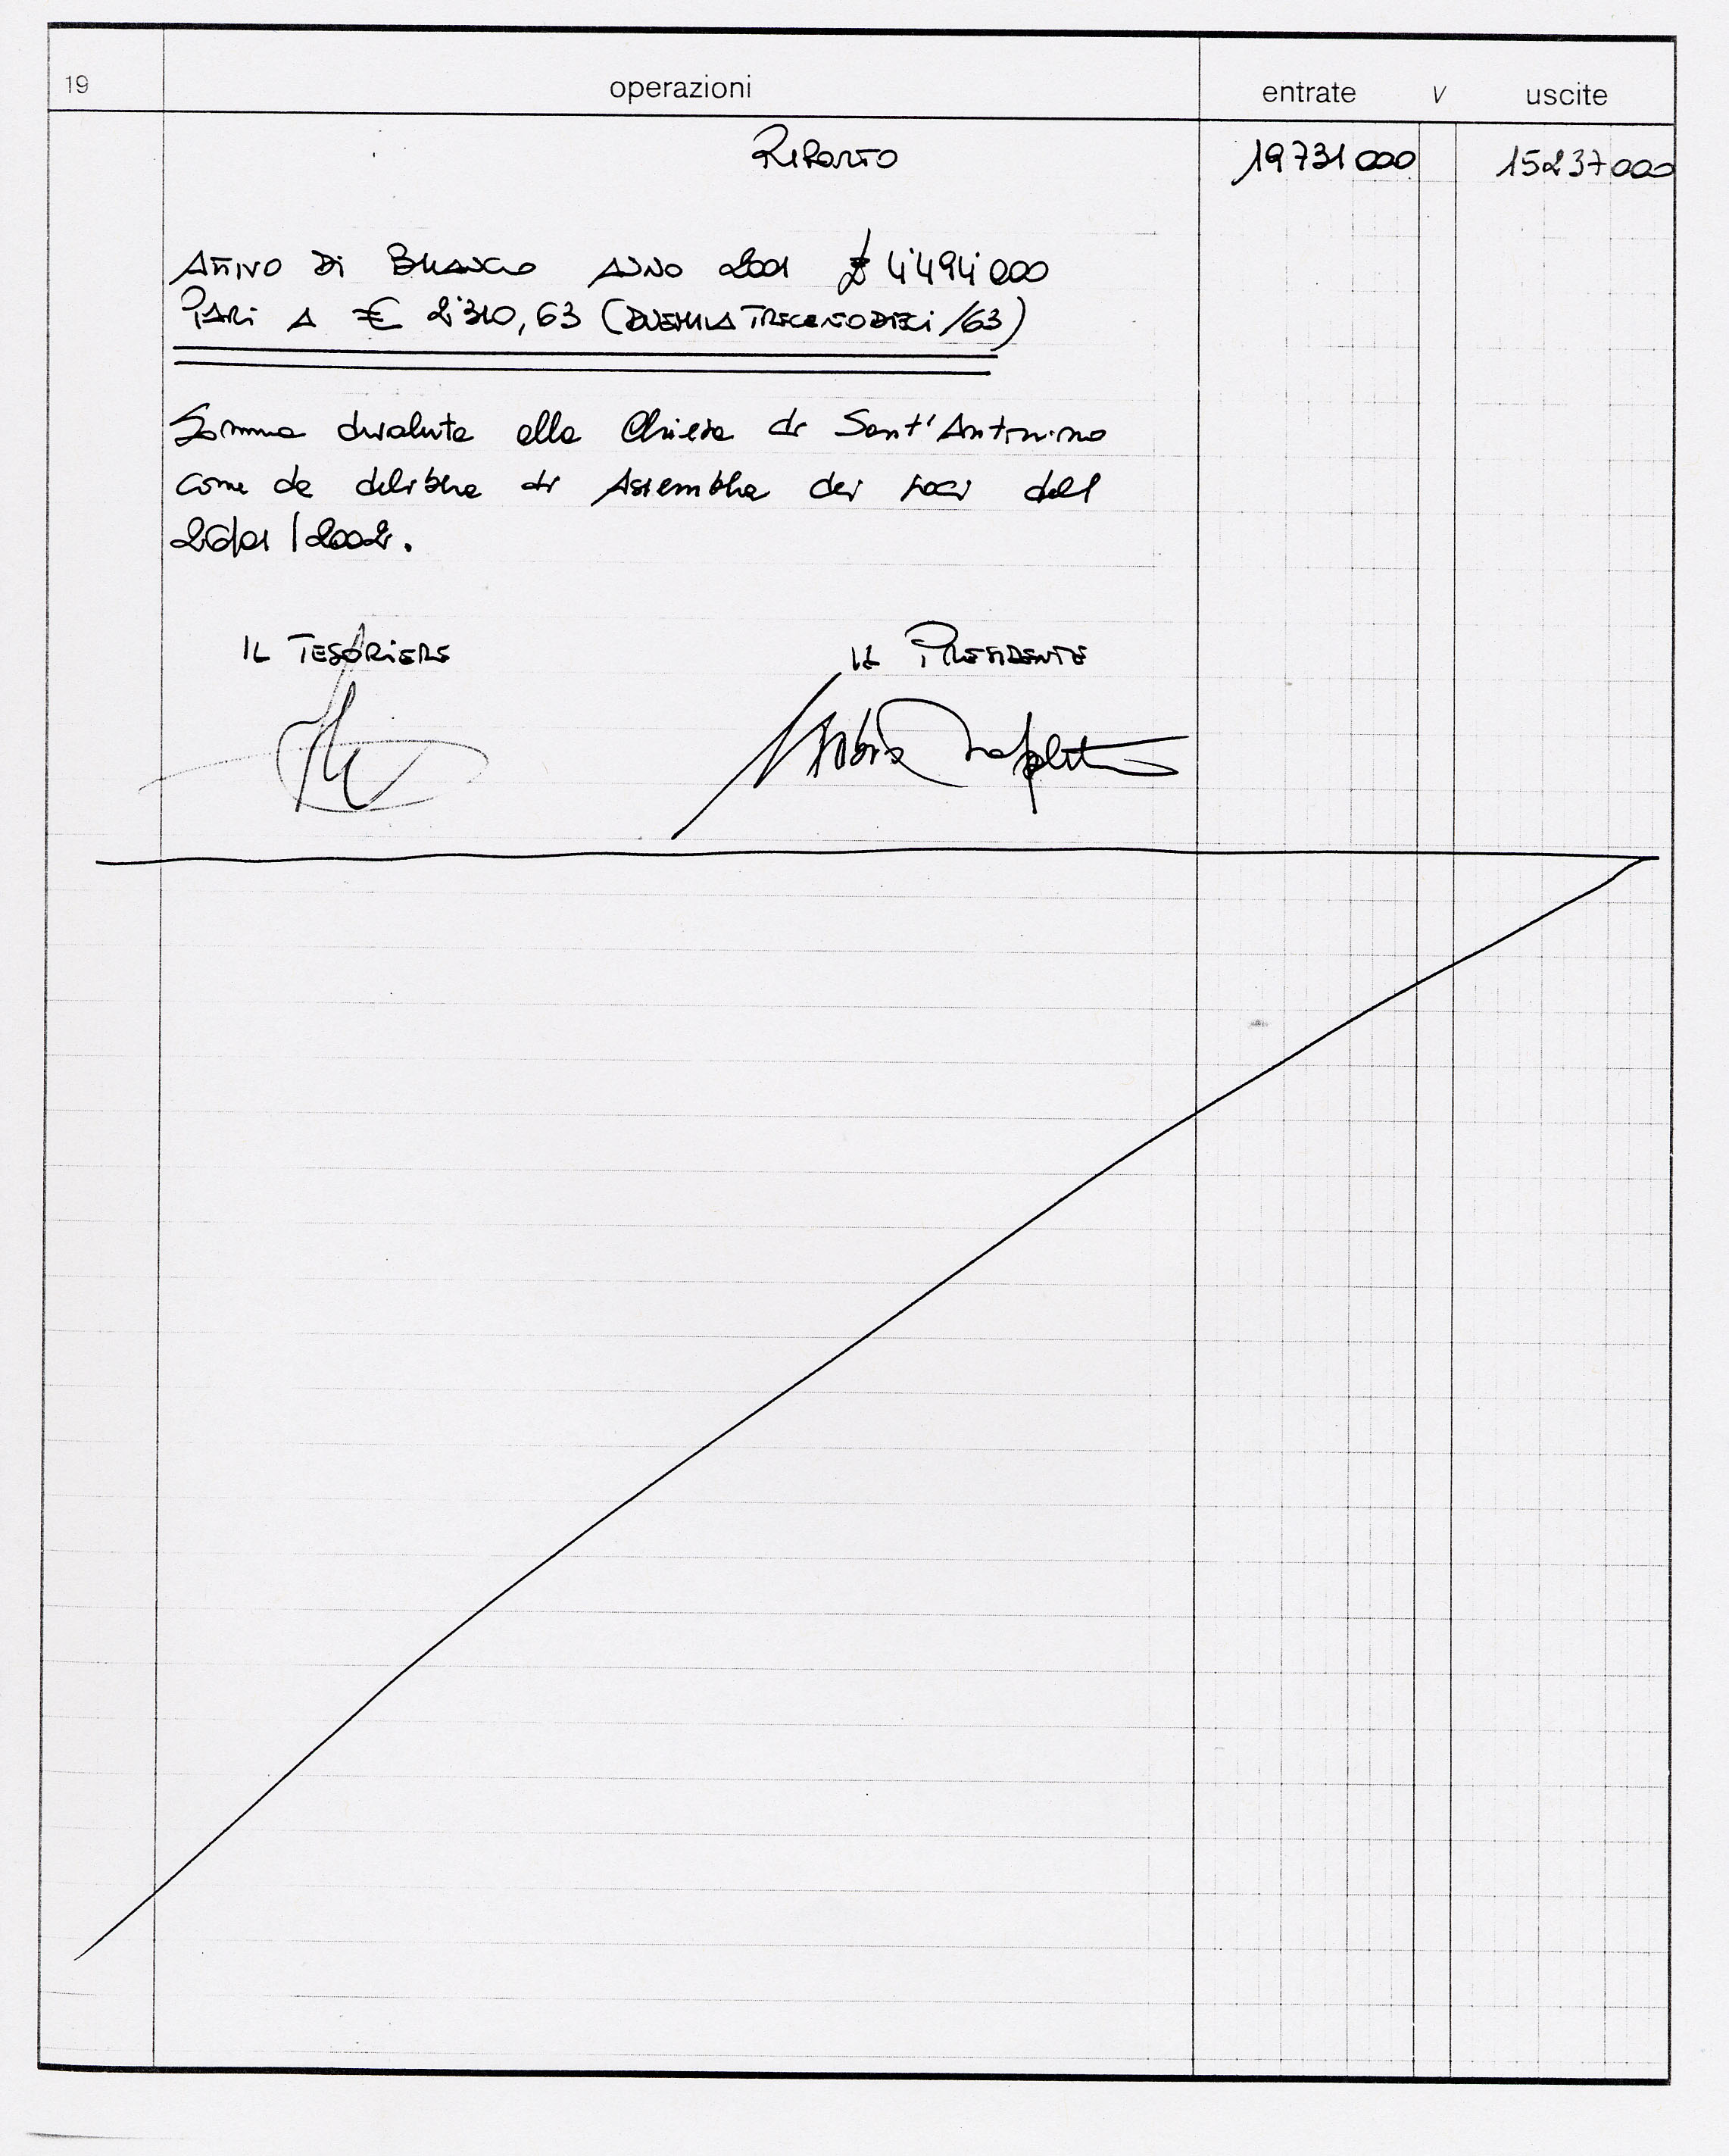 19 operazioni entrate V uscite
RIPORTO 19731000 15237000
ATTIVO DI BILANCIO ANNO 2001 £ 4'494'000
PARI A € 2'320,63 (DUEMILATRECENTODIECI/63)
Somma devoluta alla Chiesa di Sant'Antonino
come da delibera di Assemblea dei soci dell
26/01/2002.
IL TESORIERE IL PRESIDENTE